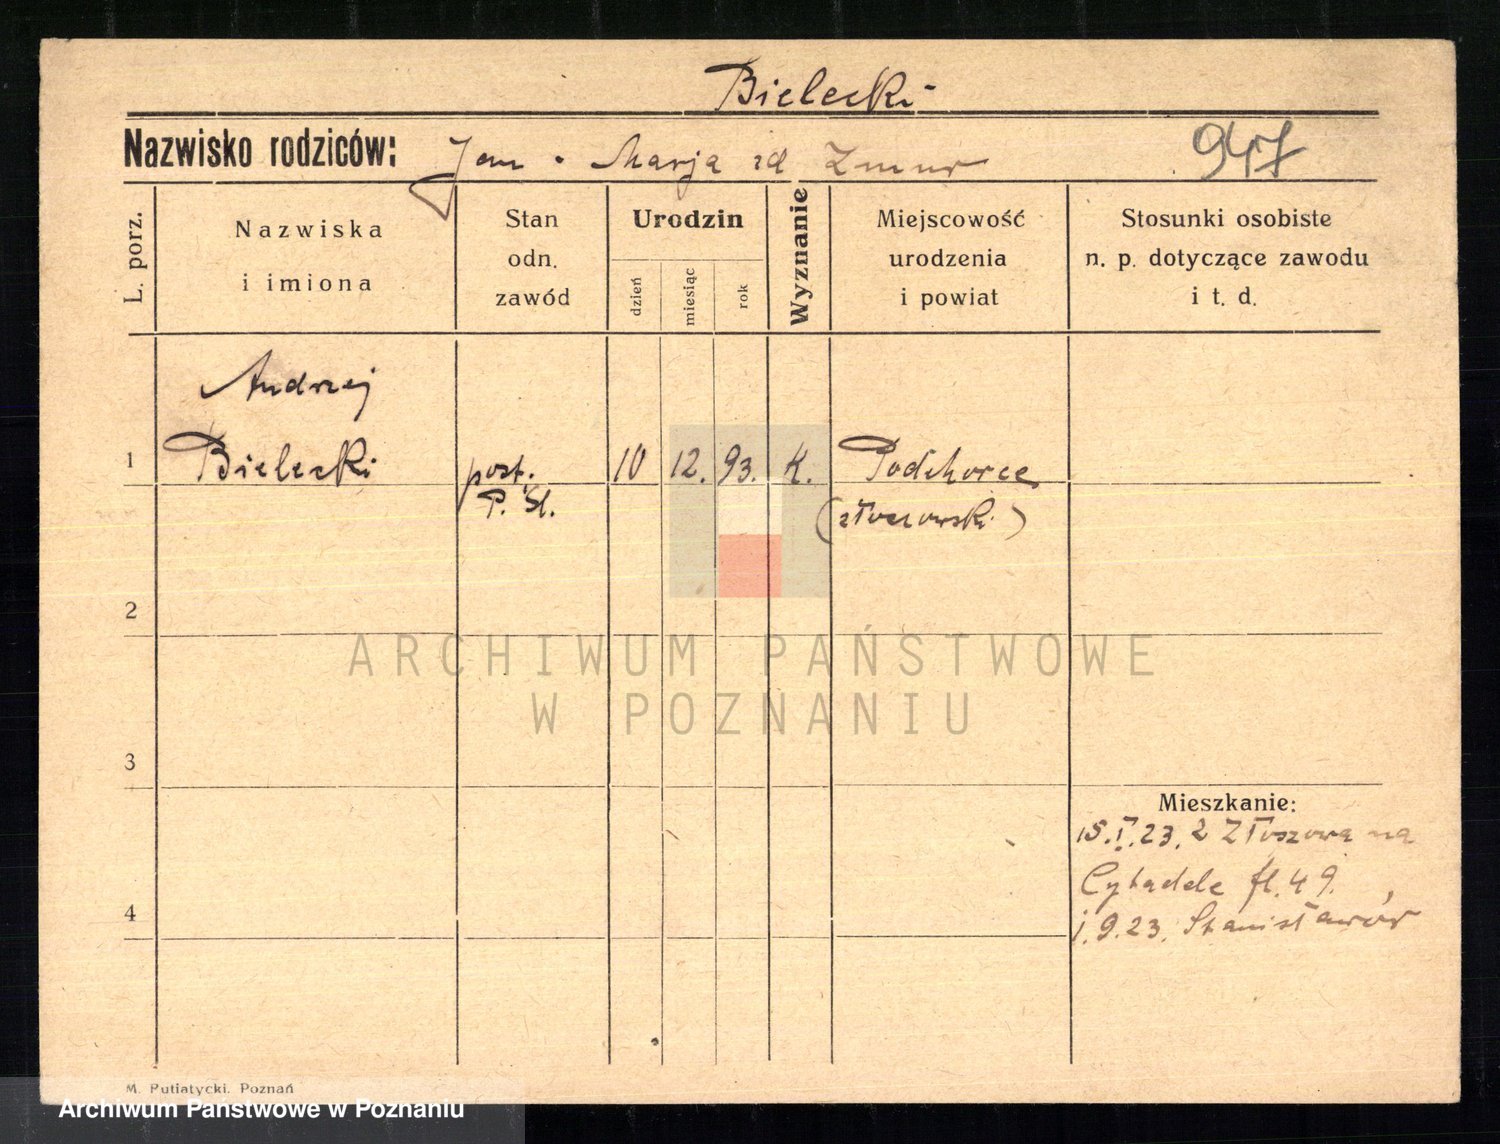 Bielecki
Nazwisko rodziców: Jan · Marja zd Zmur
947
L. porz.
Nazwiska
i imiona
Stan
odn.
zawód
Urodzin
dzień
miesiąc
rok
Wyznanie
Miejscowość
urodzenia
i powiat
Stosunki osobiste
n. p. dotyczące zawodu
i t. d.
Andrzej
1 Bielecki post. 10 12. 93. K. Podchorce
P. Sl. (złoczowski)
2
ARCHIWUM PAŃSTWOWE
W POZNANIU
3
Mieszkanie:
15.I.23. z Złoszowa na
Cytadele fl. 49.
4
1.9.23. Stanisławów
M. Putiatycki. Poznań
Archiwum Państwowe w Poznaniu